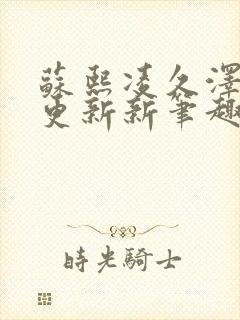 蘇熙凌久澤
更新新筆趣
時光騎士